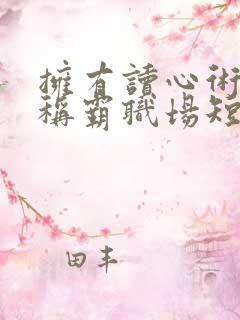 擁有讀心術
稱霸職場短
田丰